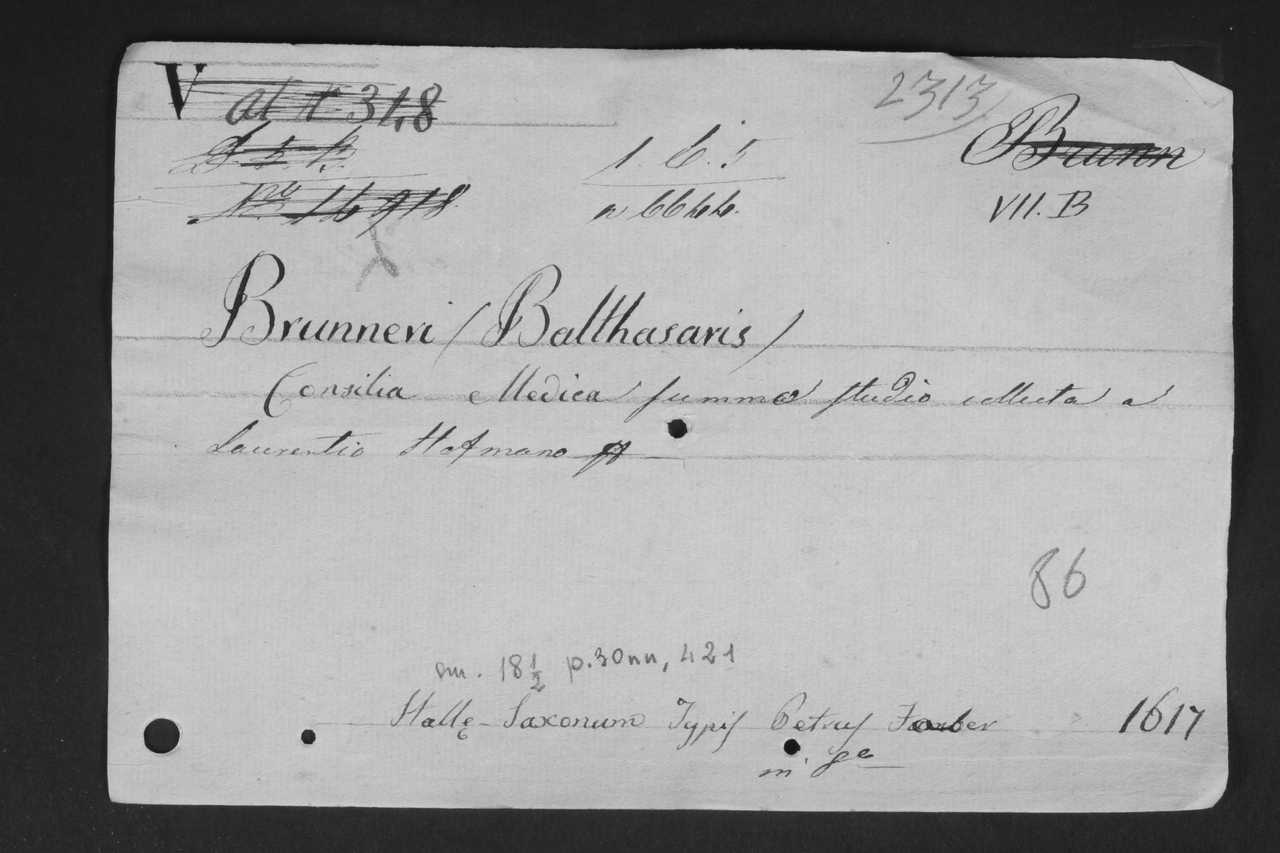 V al
2313
1. 6. 5
Brunn
n 6644.
VII. B
Brunneri (Balthasaris)
Consilia Medica summo studio collecta a
Laurentio Hofmano
86
cm. 18 1/2 p. 30nn, 421
Halle Saxonum Typis Petrus Faber 1617
in 8º